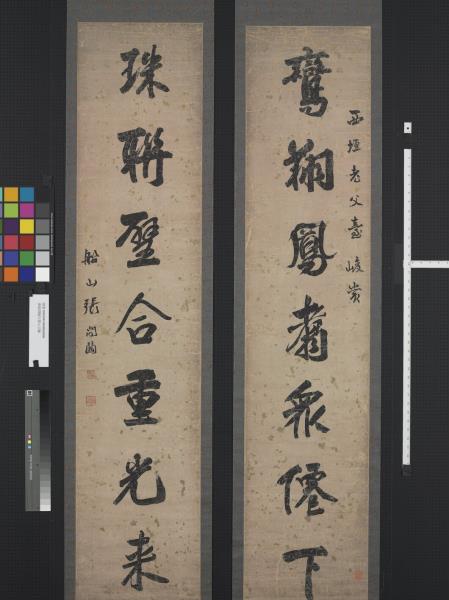 西垣老父臺峻賞
鸞翔鳳翥衆僊下
珠聯璧合重光来
船山張問陶